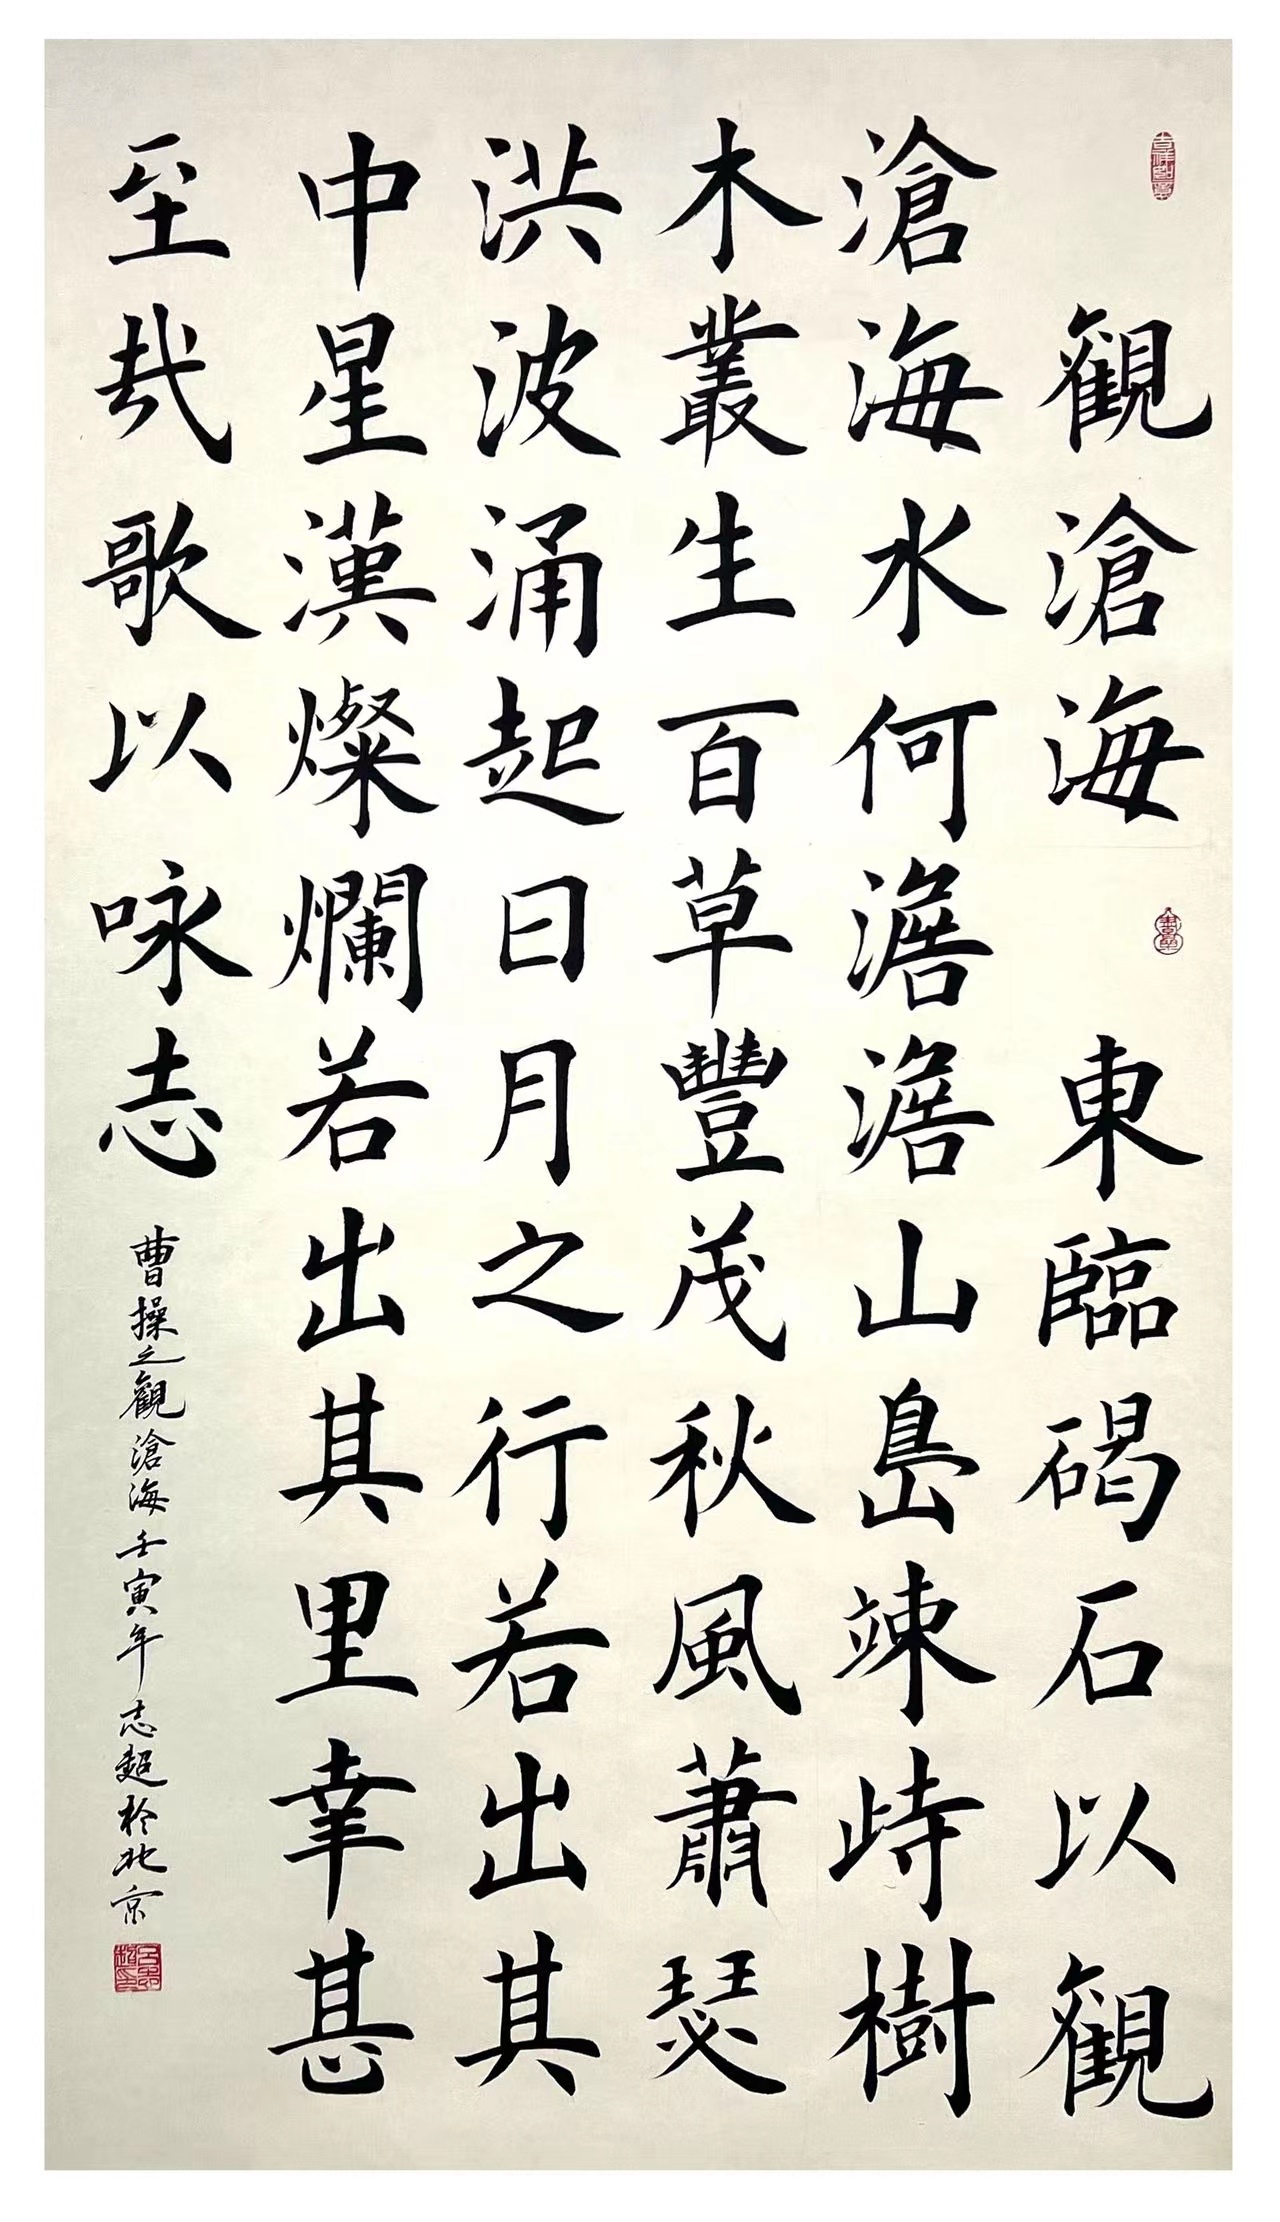 觀滄海 東臨碣石以觀
滄海水何澹澹山島竦峙樹
木叢生百草豐茂秋風蕭瑟
洪波涌起日月之行若出其
中星漢燦爛若出其里幸甚
至哉歌以咏志
曹操之觀滄海壬寅年志超於北京